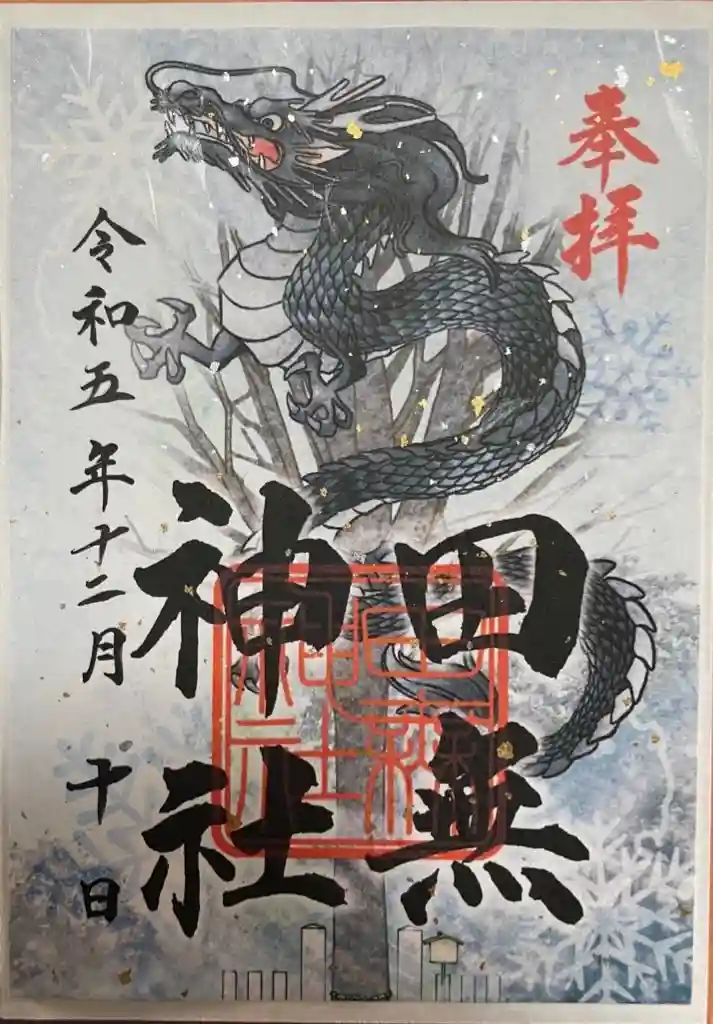 奉拝
田無
神社
令和五年十二月十日